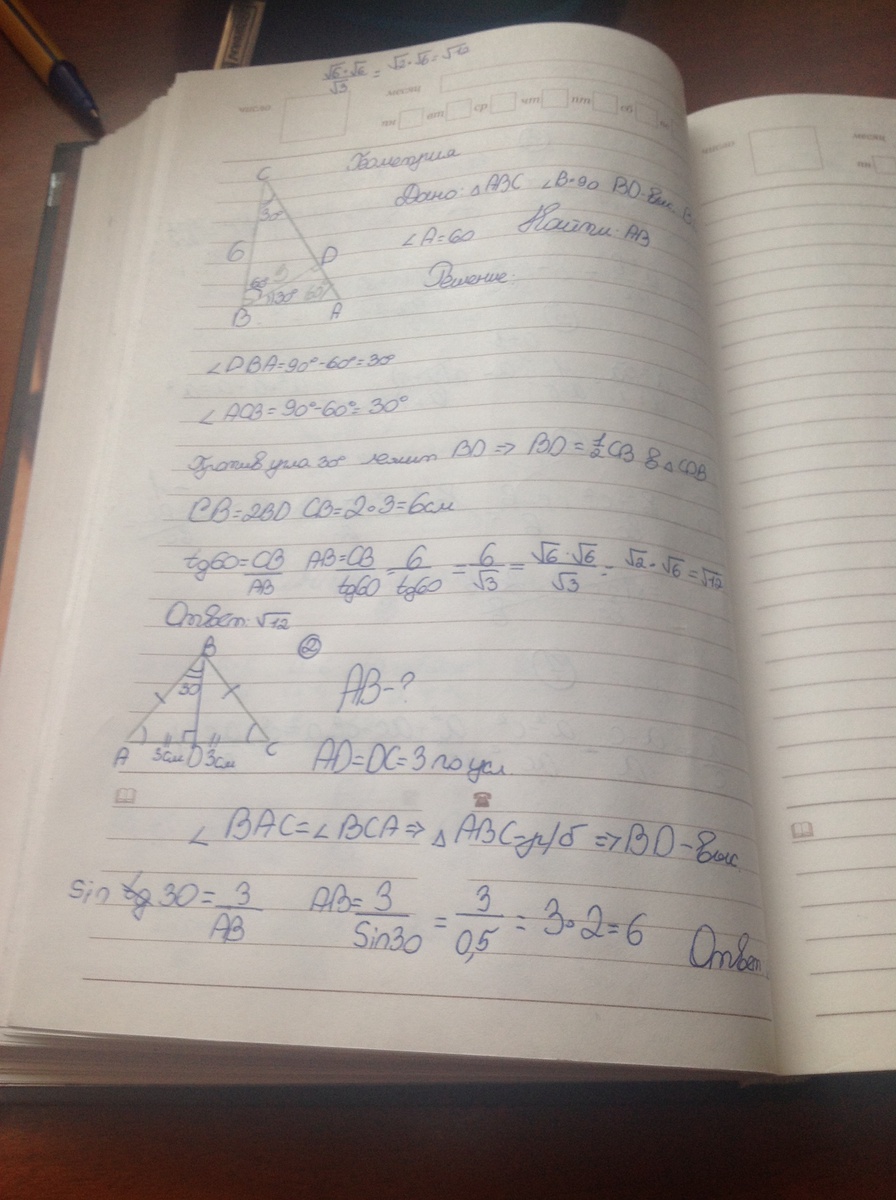 √6·√6/√3 = √2·√6=√12
число
месяц
пн вт ср чт пт сб
число
месяц
пн
Геометрия
Дано: △ABC ∠B=90 BD-выс.
∠A=60 Найти: AB
Решение:
C
30°
6
D
60° 3
30° 60°
B A
∠DBA=90°-60°=30°
∠ACB=90°-60°=30°
Против угла 30° лежит BD ⇒ BD=1/2CB в △CDB
CB=2BD CB=2·3=6см
tg60=CB/AB AB=CB/tg60=6/tg60=6/√3=√6·√6/√3=√2·√6=√12
Ответ: √12
B
②
30
AB-?
A 3см D 3см C
AD=DC=3 по усл.
∠BAC=∠BCA⇒△ABC=р/б⇒BD-выс
sin 30=3/AB AB=3/Sin30=3/0,5=3·2=6 Ответ